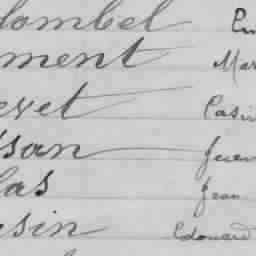 lombel Em
ment Mar
evet Casi
ssan
las Jean
sin Edouard